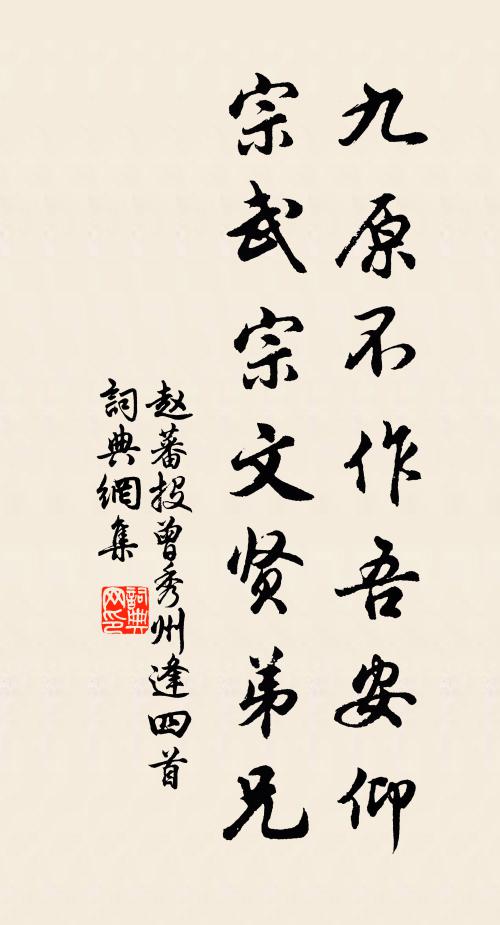 九原不作吾安仰
宗武宗文贤弟兄
赵蕃投曾秀州逢四首
詞典網集
詞典網印